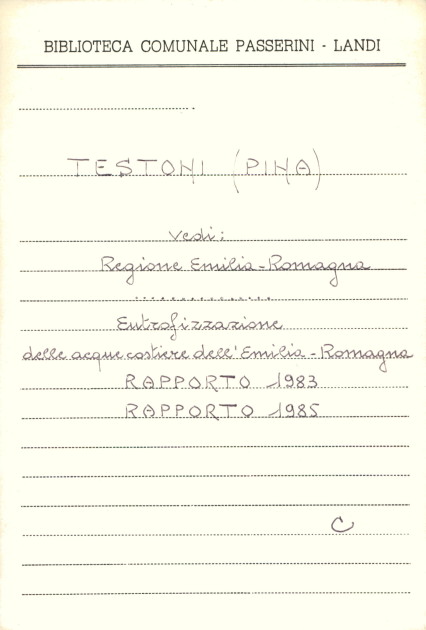 BIBLIOTECA COMUNALE PASSERINI - LANDI
TESTONI (PINA)
vedi:
Regione Emilia-Romagna
...............
Eutrofizzazione
delle acque costiere dell'Emilia-Romagna
RAPPORTO 1983
RAPPORTO 1985
C